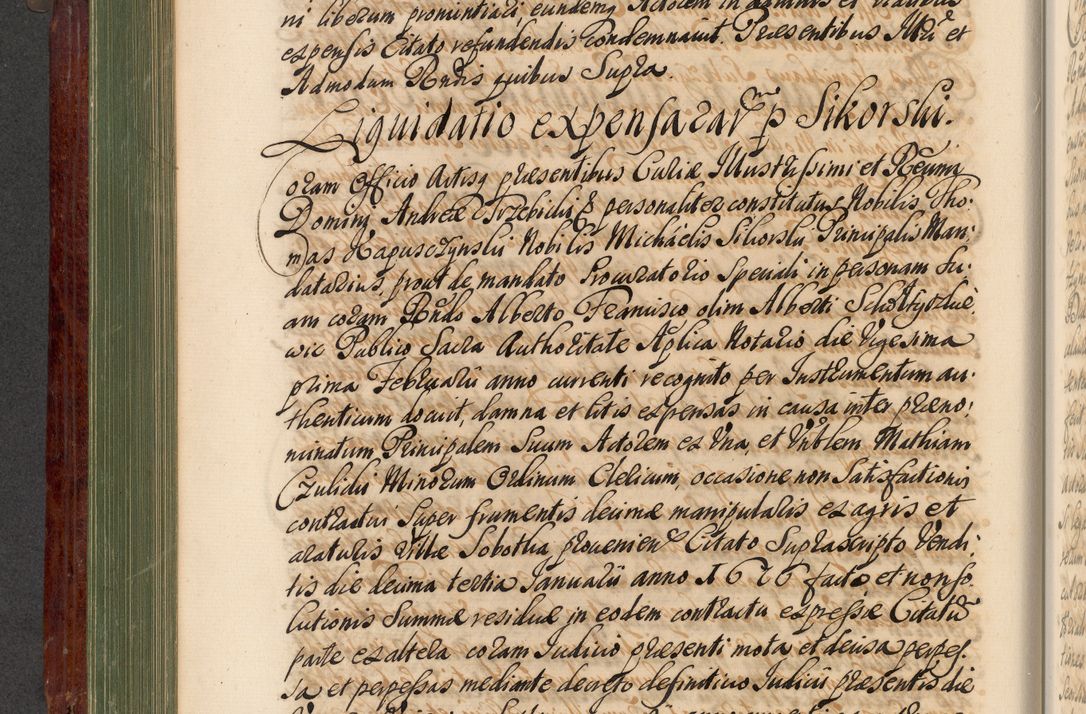 ni liberum pronuntiari eundemq Actorem in damnis et
expensis Citato refundendis Condemnavit. Præsentibus Illri et
Admodum Rndis quibus Supra.
Liquidatio expensarum p Sikorski.
Coram Officio Actisq præsentibus Curiæ Illustrissimi et Reũmi
Domini Andreæ Trzebicki &c personaliter constitutus Nobilis Tho:
mas Kapusczynski Nobilis Michaëlis Sikorski Principalis Man:
datarius, prout de mandato Procuratorio Speciali in personam Su:
am coram Rndo Alberto Francisco olim Alberti
wic Publico Sacra Authoritate Aplica Notario die Vigesima
prima Februarii anno currenti recognito per Instrumentum au:
thenticum docuit, damna et litis expensas in causa inter præno:
minatum Principalem Suum Actorem ex Una, et Vnblem Mathiam
Czulicki Minorum Ordinum Clericum, occasione non Satisfactionis
contractui Super frumentis decimæ manipularis ex agris et
araturis Villæ Sobotka provenien Citato Suprascripto Vendi:
tis die decima tertia Januarii anno 1676 facto et non so:
lutionis Summæ residuæ in eodem contractu expressæ Citatum
parte ex altera coram Judicio præsenti mota et decisa perpes
sa et perpessas mediante decreto definitivo Judicii præsentis die